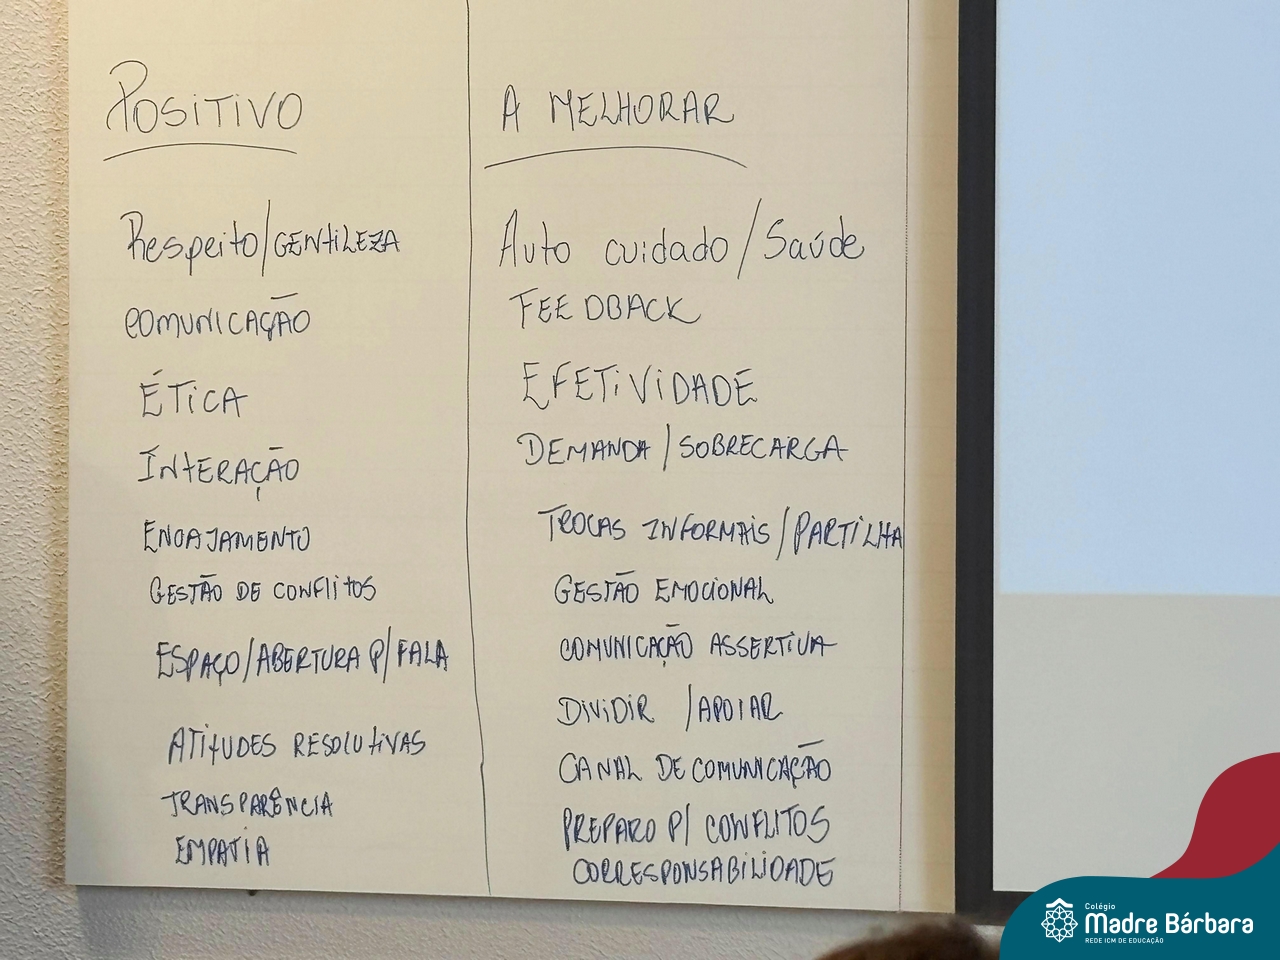 POSITIVO
Respeito/GENTILEZA
COMUNICAÇÃO
ÉTICA
INTERAÇÃO
ENGAJAMENTO
GESTÃO DE CONFLITOS
ESPAÇO/ABERTURA P/ FALA
ATITUDES RESOLUTIVAS
TRANSPARÊNCIA
EMPATIA
A MELHORAR
Auto cuidado/Saúde
FEEDBACK
EFETIVIDADE
DEMANDA/SOBRECARGA
TROCAS INFORMAIS/PARTILHA
GESTÃO EMOCIONAL
COMUNICAÇÃO ASSERTIVA
DIVIDIR /APOIAR
CANAL DE COMUNICAÇÃO
PREPARO P/ CONFLITOS
CORRESPONSABILIDADE
Colégio
Madre Bárbara
REDE ICM DE EDUCAÇÃO